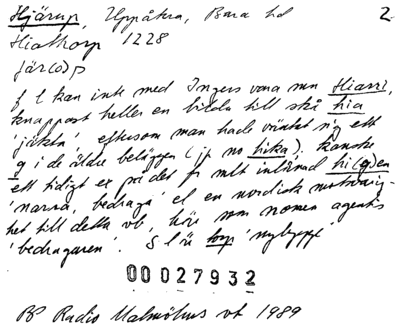 Hjärup, Uppåkra, Bara hd 2
Hiatkorp 1228
jär(o)p
f l kan inte med Ingers vara mn Hiarri,
knappast heller en bildn till skå hia
'jäkta', eftersom man hade väntat sig ett
g i de äldre beläggen (jfr no hika). Kanske
ett tidigt ex på det fr mlt inlånad hi(g)en
'narra, bedraga' el en nordisk motsvarig-
het till detta vb, här som nomen agentis
'bedragaren'. S l är torp 'nybygge'
00027932
BP Radio Malmöhus vt 1989